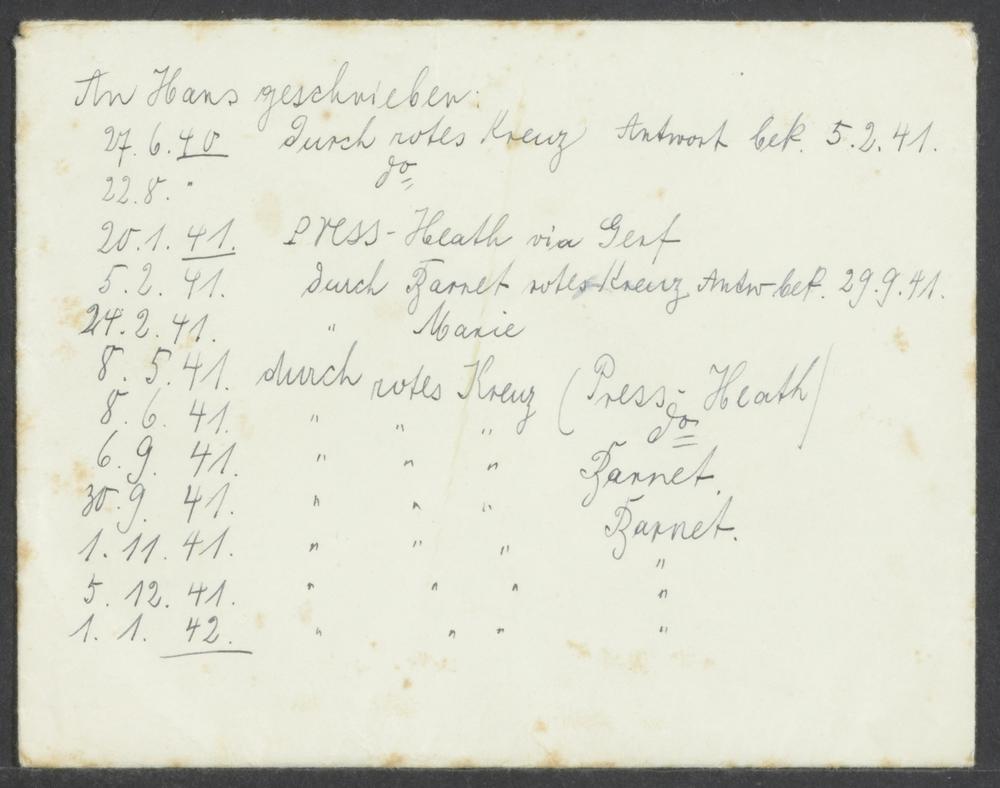 An Hans geschrieben:
27. 6. 40 durch rotes Kreuz Antwort bek. 5. 2. 41.
22. 8. " do
20. 1. 41. Press-Heath via Genf
5. 2. 41. durch Barnet rotes Kreuz Antw bek. 29. 9. 41.
24. 2. 41. " Marie
8. 5. 41. durch rotes Kreuz (Press-Heath)
8. 6. 41. " " " do
6. 9. 41. " " " Barnet.
30. 9. 41. " " " Barnet.
1. 11. 41. " " " "
5. 12. 41. " " " "
1. 1. 42. " " " "